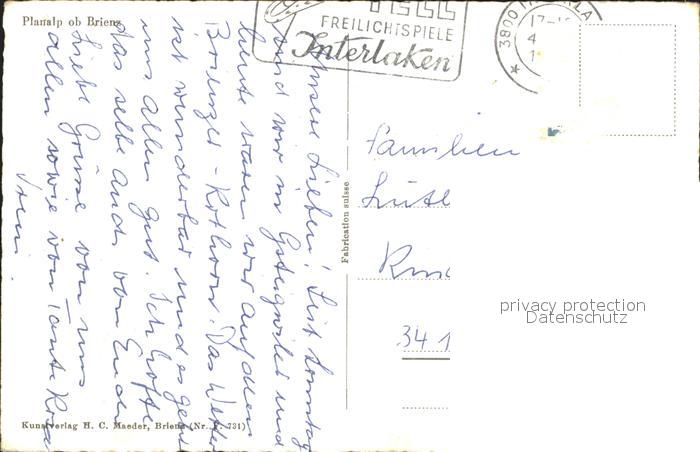 Planalp ob Brienz
TELL
FREILICHTSPIELE
Interlaken
3800 INTERLA
17-
4
1
Unsere Lieben! Seit Sonntag
sind wir in Gsteigwiler und
heute waren wir auf dem
Brienzer-Rothorn. Das Wetter
ist wunderbar und es geht
uns allen gut. Ich hoffe
das selbe auch von Euch
Liebe Grüsse von uns
allen sowie von Tante Rosa
Fabrication suisse
Familien
Lüt
34 1
privacy protection
Datenschutz
Kunstverlag H. C. Maeder, Brienz (Nr. F. 731)